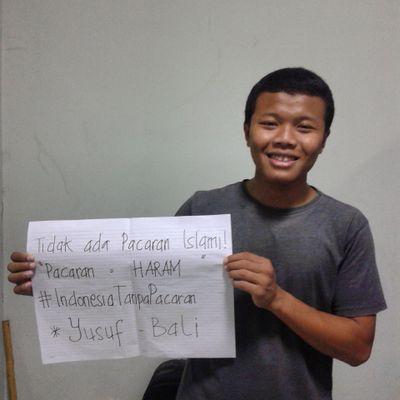 Tidak ada Pacaran Islami!
"Pacaran = HARAM"
#IndonesiaTanpaPacaran
* Yusuf - Bali